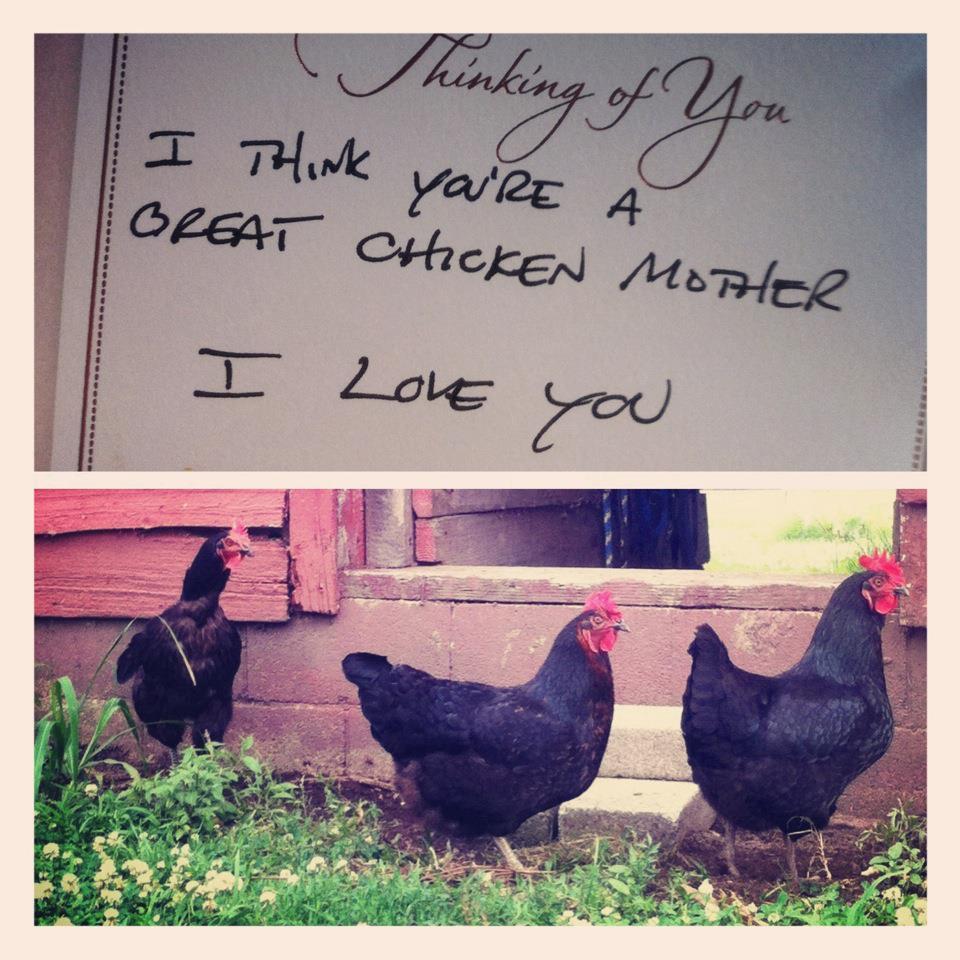 Thinking of You
I THINK YOU'RE A
GREAT CHICKEN MOTHER
I LOVE YOU